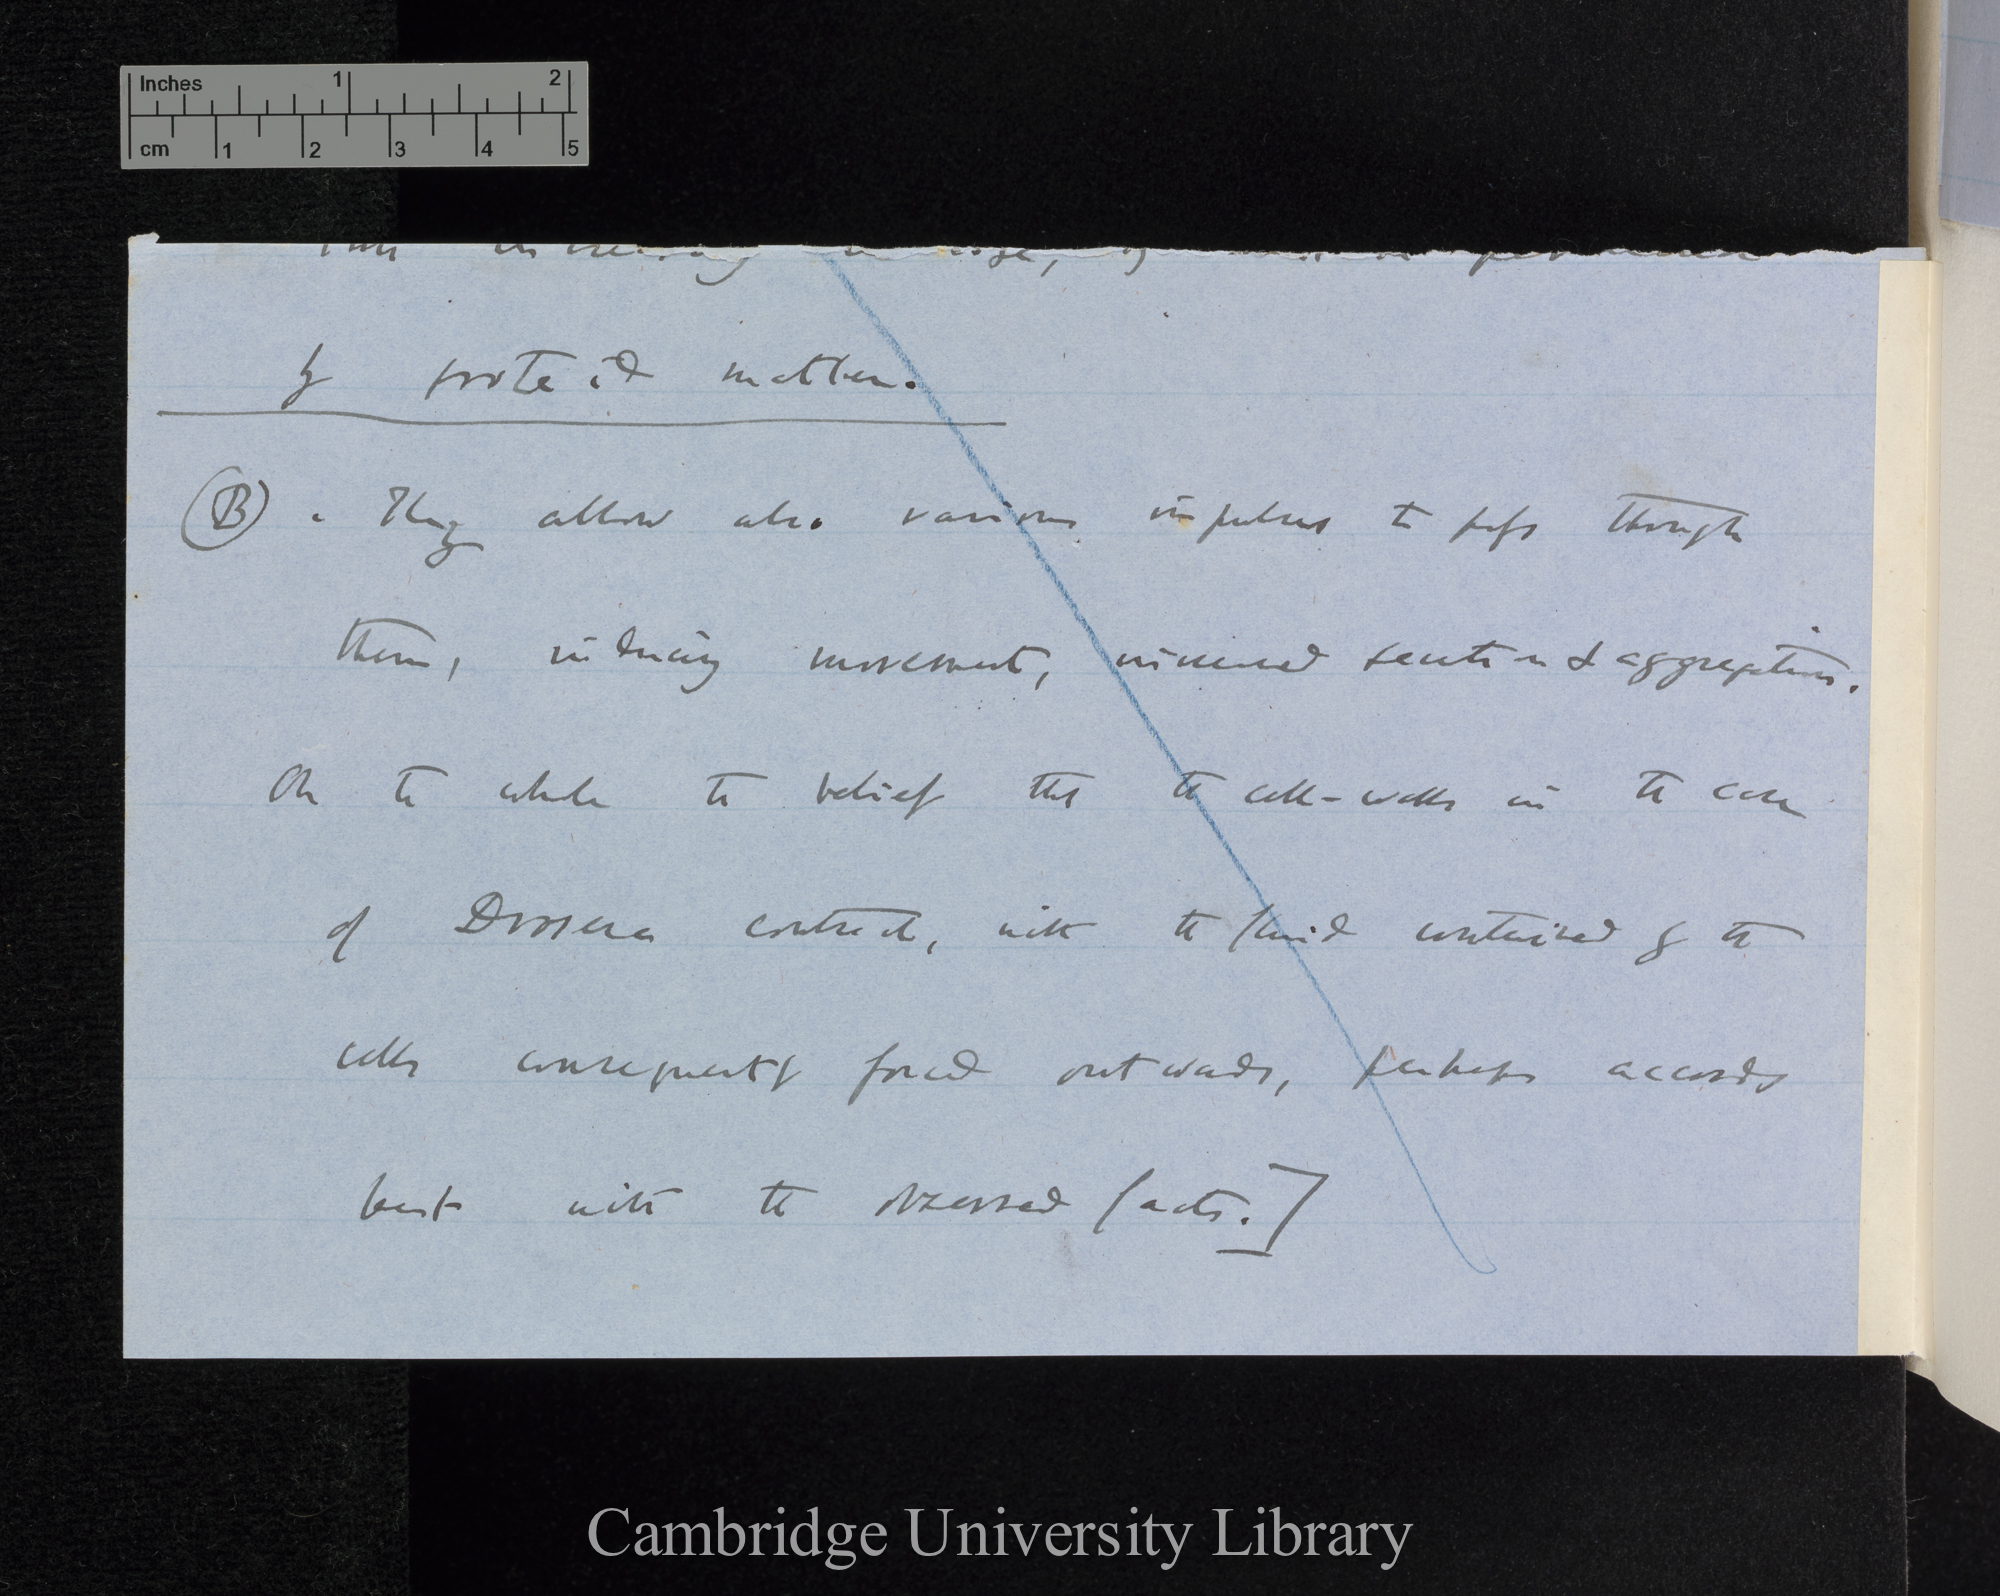 Inches 1 2
cm 1 2 3 4 5
by proteid matter.
(B). They allow also various impulses to pass through
them, inducing movement, increased secretion & aggregation.
On the whole the belief that the cell-walls in the case
of Drosera contract, with the fluid contained by the
cells consequently forced outwards, perhaps accords
best with the observed facts.]
Cambridge University Library